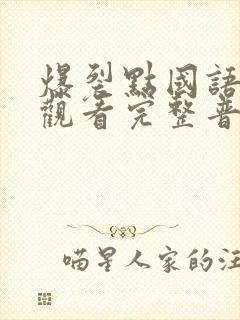 爆裂點國語
觀看完整普
喵星人家的汪